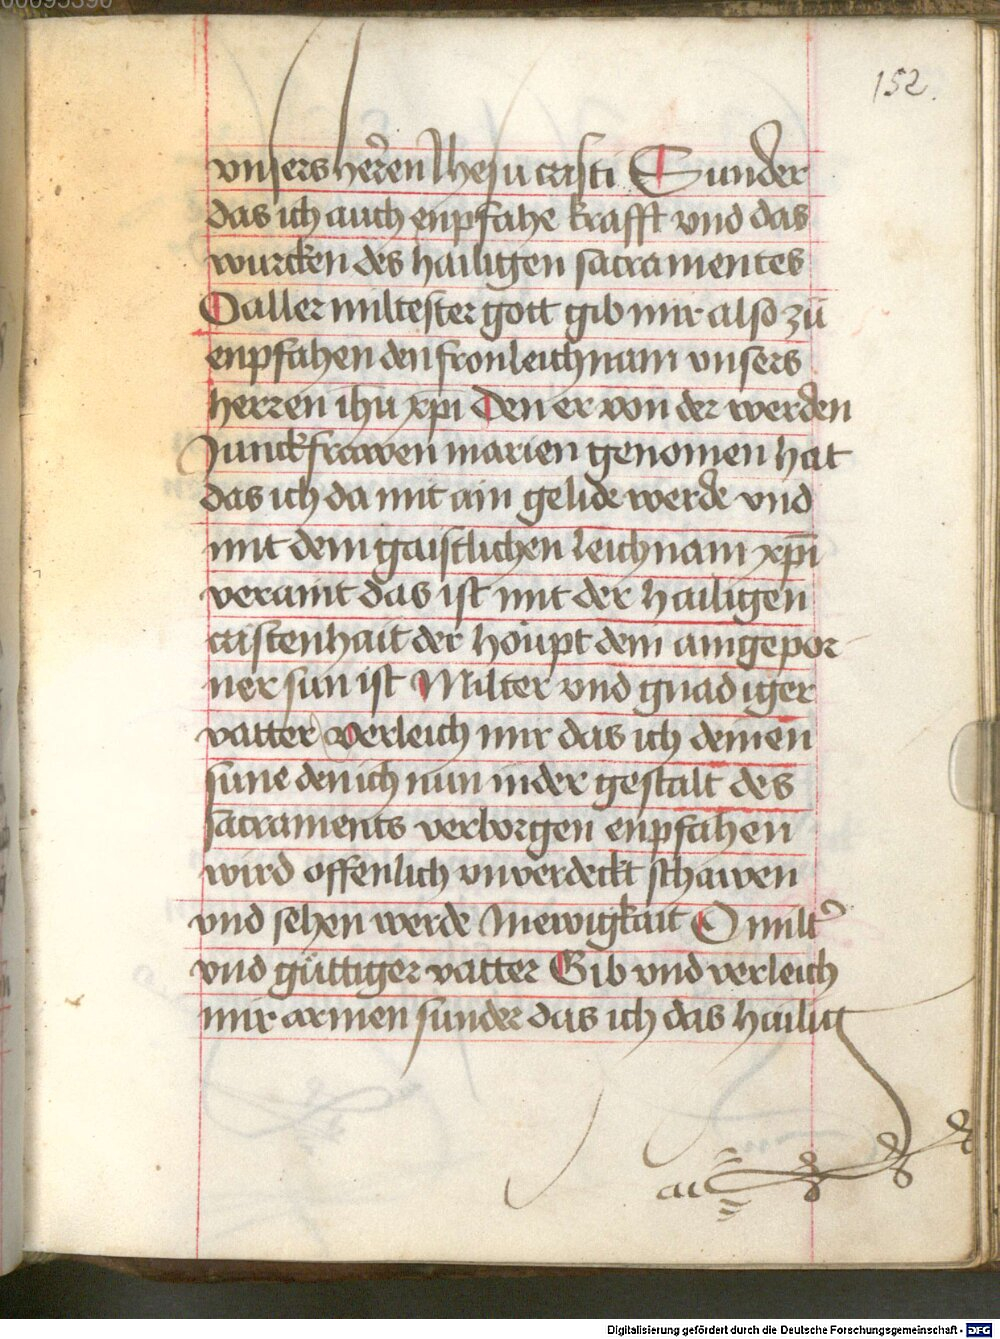 152.
vnsers herren Jhesu cristi Sunder
das ich auch enpfahe krafft vnd das
wurcken des hailigen sacramentes
O aller miltester gott gib mir also zu
enpfahen den fronleichnam vnsers
herren ihu xpi Den er von der werden
Junckfrawen marien genomen hat
das ich da mit ain gelide werde vnd
mit dem gaistlichen leichnam xpi
veraint das ist mit der hailigen
cristenhait der houpt dein aingepor
ner sun ist Milter vnd gnadiger
vatter verleich mir das ich deinen
sune den ich nun in der gestalt des
sacraments verborgen enpfahen
wird offenlich vnverdeckt schawen
vnd sehen werde In ewigkait O milter
vnd güttiger vatter Gib vnd verleich
mir armen sunder das ich das hailig
Digitalisierung gefördert durch die Deutsche Forschungsgemeinschaft - DFG